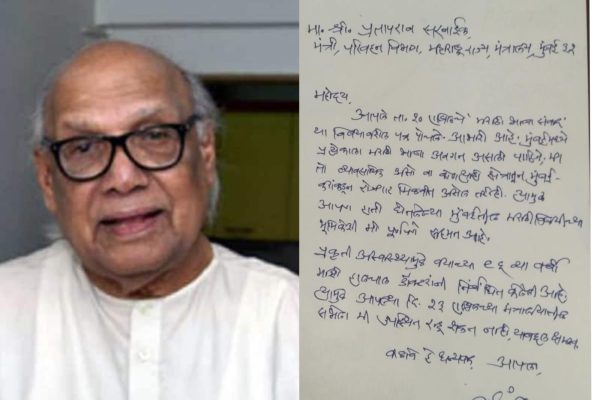 मा. श्री. प्रतापराव सरनाईक,
मंत्री, परिवहन विभाग, महाराष्ट्र राज्य, मंत्रालय, मुंबई ३२
महोदय,
आपले ता. २० एप्रिलचे 'मराठी भाषा संबंधी'
या विषयावरील पत्र पोचले. आभारी आहे. मुंबईमध्ये
प्रत्येकाला मराठी भाषा अवगत असली पाहिजे. मग
तो व्यावसायिक असो वा कोणत्याही क्षेत्रातून मुंबई-
रोजगार मिळवीत असेल तरीही. त्यामुळे
आपण घेतलेल्या मुंबईतील मराठी विषयीच्या
भूमिकेशी मी पूर्णपणे सहमत आहे.
प्रकृती अस्वास्थ्यामुळे वयाच्या ८६ व्या वर्षी
माझी हालचाल डॉक्टरांनी निर्बंधित केलेली आहे.
त्यामुळे आपल्या दि. २३ एप्रिलच्या मंत्रालयातील
सभेला मी उपस्थित राहू शकत नाही, याबद्दल क्षमस्व.
कळावे हे धन्यवाद. आपला,